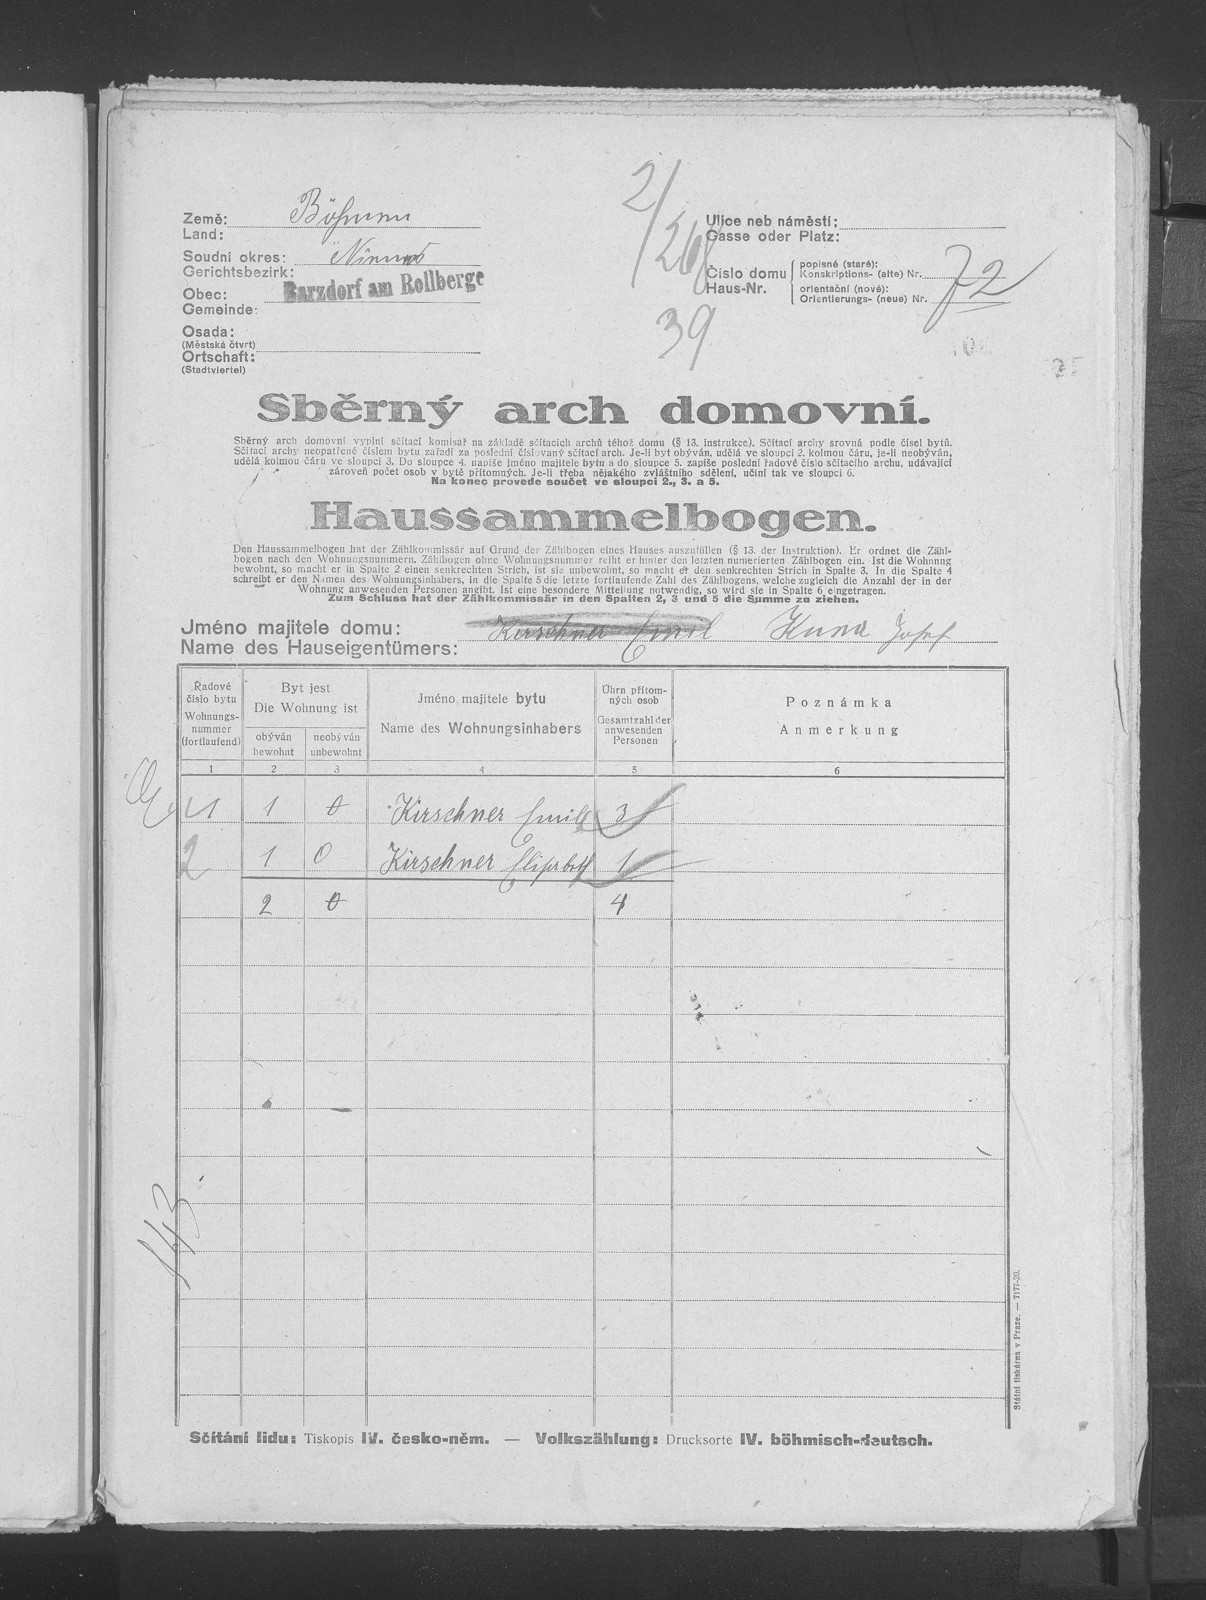 Země: Böhmen
Land:
Soudní okres: Niemes
Gerichtsbezirk:
Obec: Barzdorf am Rollberge
Gemeinde:
Osada:
(Městská čtvrt)
Ortschaft:
(Stadtviertel)
2/
268
39
Ulice neb náměstí:
Gasse oder Platz:
Číslo domu popisné (staré):
Konskriptions- (alte) Nr.
Haus-Nr. orientační (nové):
Orientierungs- (neue) Nr.
72
Sběrný arch domovní.
Sběrný arch domovní vyplní sčítací komisař na základě sčítacích archů téhož domu (§ 13. instrukce). Sčítací archy srovná podle čísel bytů.
Sčítací archy neopatřené číslem bytu zařadí za poslední číslovaný sčítací arch. Je-li byt obýván, udělá ve sloupci 2. kolmou čáru, je-li neobýván,
udělá kolmou čáru ve sloupci 3. Do sloupce 4. napíše jméno majitele bytu a do sloupce 5. zapíše poslední řadové číslo sčítacího archu, udávající
zároveň počet osob v bytě přítomných. Je-li třeba nějakého zvláštního sdělení, učiní tak ve sloupci 6.
Na konec provede součet ve sloupci 2., 3. a 5.
Haussammelbogen.
Den Haussammelbogen hat der Zählkommissär auf Grund der Zählbogen eines Hauses auszufüllen (§ 13. der Instruktion). Er ordnet die Zähl-
bogen nach den Wohnungsnummern. Zählbogen ohne Wohnungsnummer reiht er hinter den letzten numerierten Zählbogen ein. Ist die Wohnung
bewohnt, so macht er in Spalte 2 einen senkrechten Strich, ist sie unbewohnt, so macht er den senkrechten Strich in Spalte 3. In die Spalte 4
schreibt er den Namen des Wohnungsinhabers, in die Spalte 5 die letzte fortlaufende Zahl des Zählbogens, welche zugleich die Anzahl der in der
Wohnung anwesenden Personen angibt. Ist eine besondere Mitteilung notwendig, so wird sie in Spalte 6 eingetragen.
Zum Schluss hat der Zählkommissär in den Spalten 2, 3 und 5 die Summe zu ziehen.
Jméno majitele domu: Kirschner Emil Kuna Josef
Name des Hauseigentümers:
Řadové číslo bytu
Wohnungs-nummer (fortlaufend)
Byt jest
Die Wohnung ist
obýván bewohnt
neobýván unbewohnt
Jméno majitele bytu
Name des Wohnungsinhabers
Úhrn přítom-ných osob
Gesamtzahl der anwesenden Personen
Poznámka
Anmerkung
1 2 3 4 5 6
1 1 0 Kirschner Emil 3
2 1 0 Kirschner Elisabeth 1
2 0 4
143
Státní tiskárna v Praze. — 7177-20.
Sčítání lidu: Tiskopis IV. česko-něm. — Volkszählung: Drucksorte IV. böhmisch-deutsch.